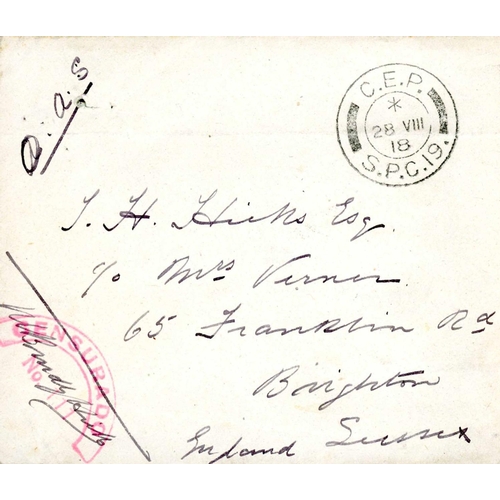 O.A.S
C.E.P.
*
28 VIII
18
S.P.C. 19.
J. H. Hicks Esq.
c/o Mrs Verner
65 Franklin Rd
Brighton
England Sussex
CENSURADO
No. 11